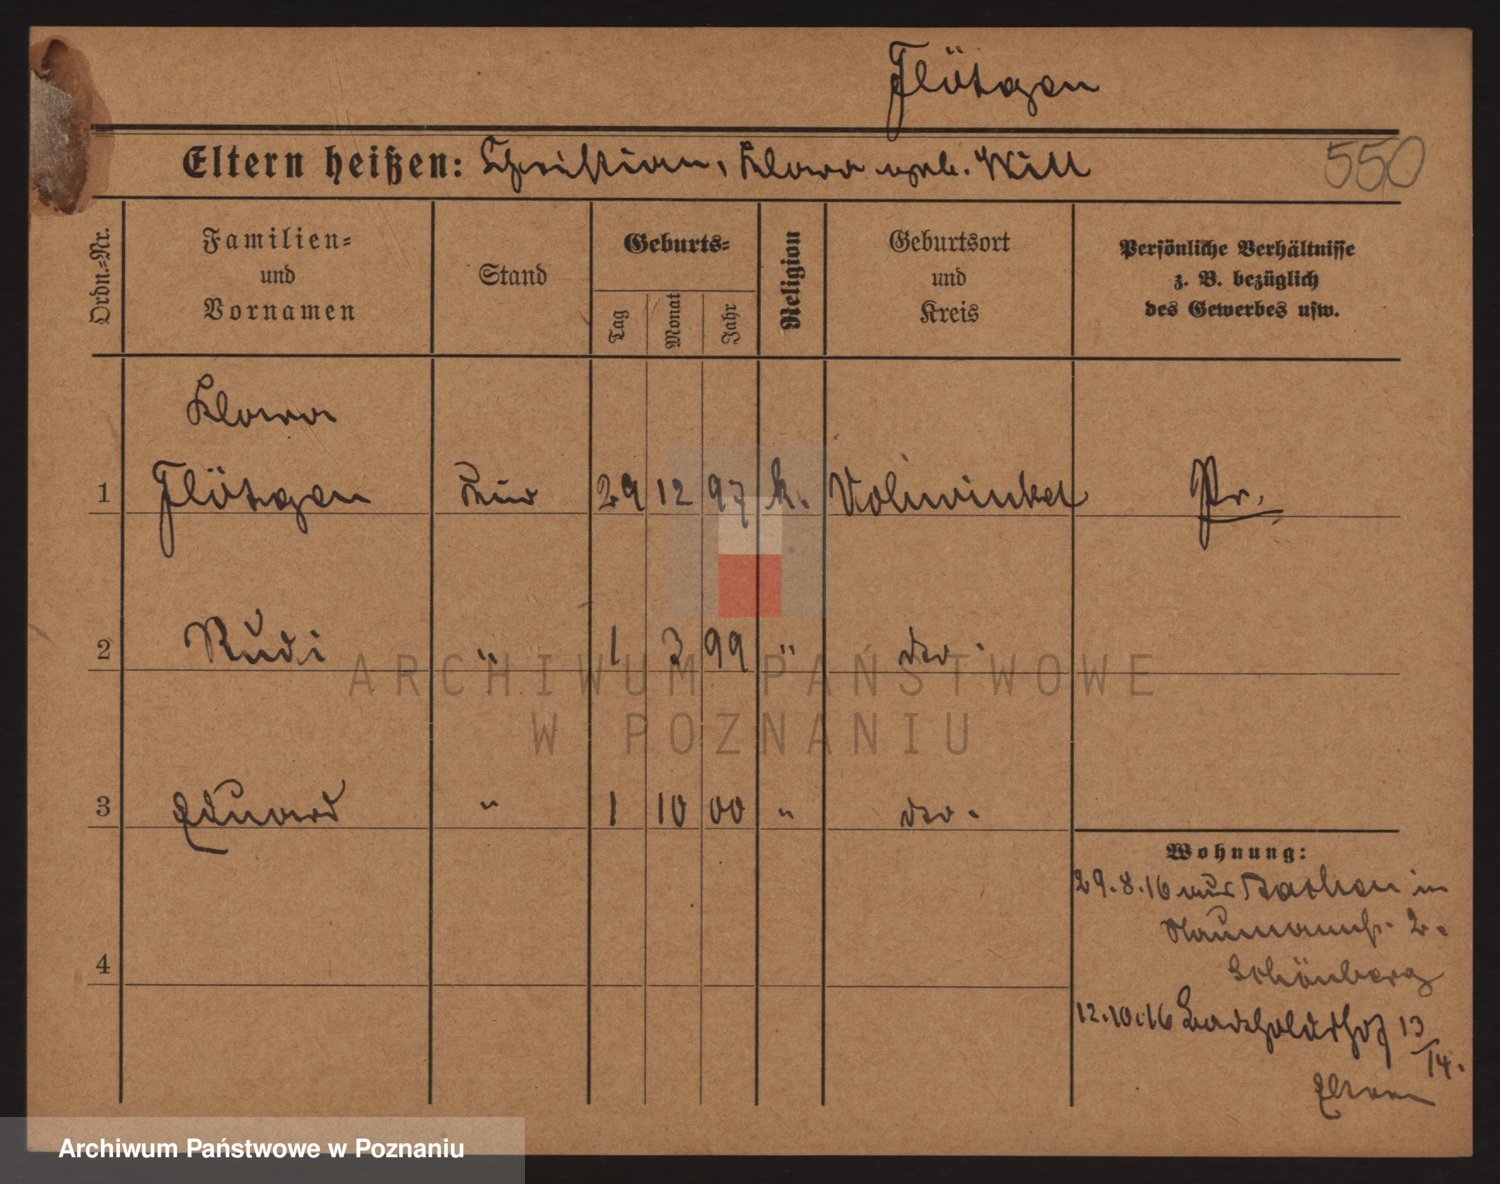 Flötgen
Eltern heißen: Christian, Klara geb. Will
550
Ordn.=Nr.
Familien=
und
Vornamen
Stand
Geburts=
Tag
Monat
Jahr
Religion
Geburtsort
und
Kreis
Persönliche Verhältnisse
z. B. bezüglich
des Gewerbes usw.
Klara
1 Flötgen Kind 29 12 97 k. Vohwinkel Pr.
2 Rudi " 1 3 99 " do.
3 Eduard " 1 10 00 " do.
Wohnung:
29.8.16 aus Aachen in
Naumannst. 2.
Schönberg
4
12.10.16 13
/14.
Eltern
ARCHIWUM PAŃSTWOWE
W POZNANIU
Archiwum Państwowe w Poznaniu